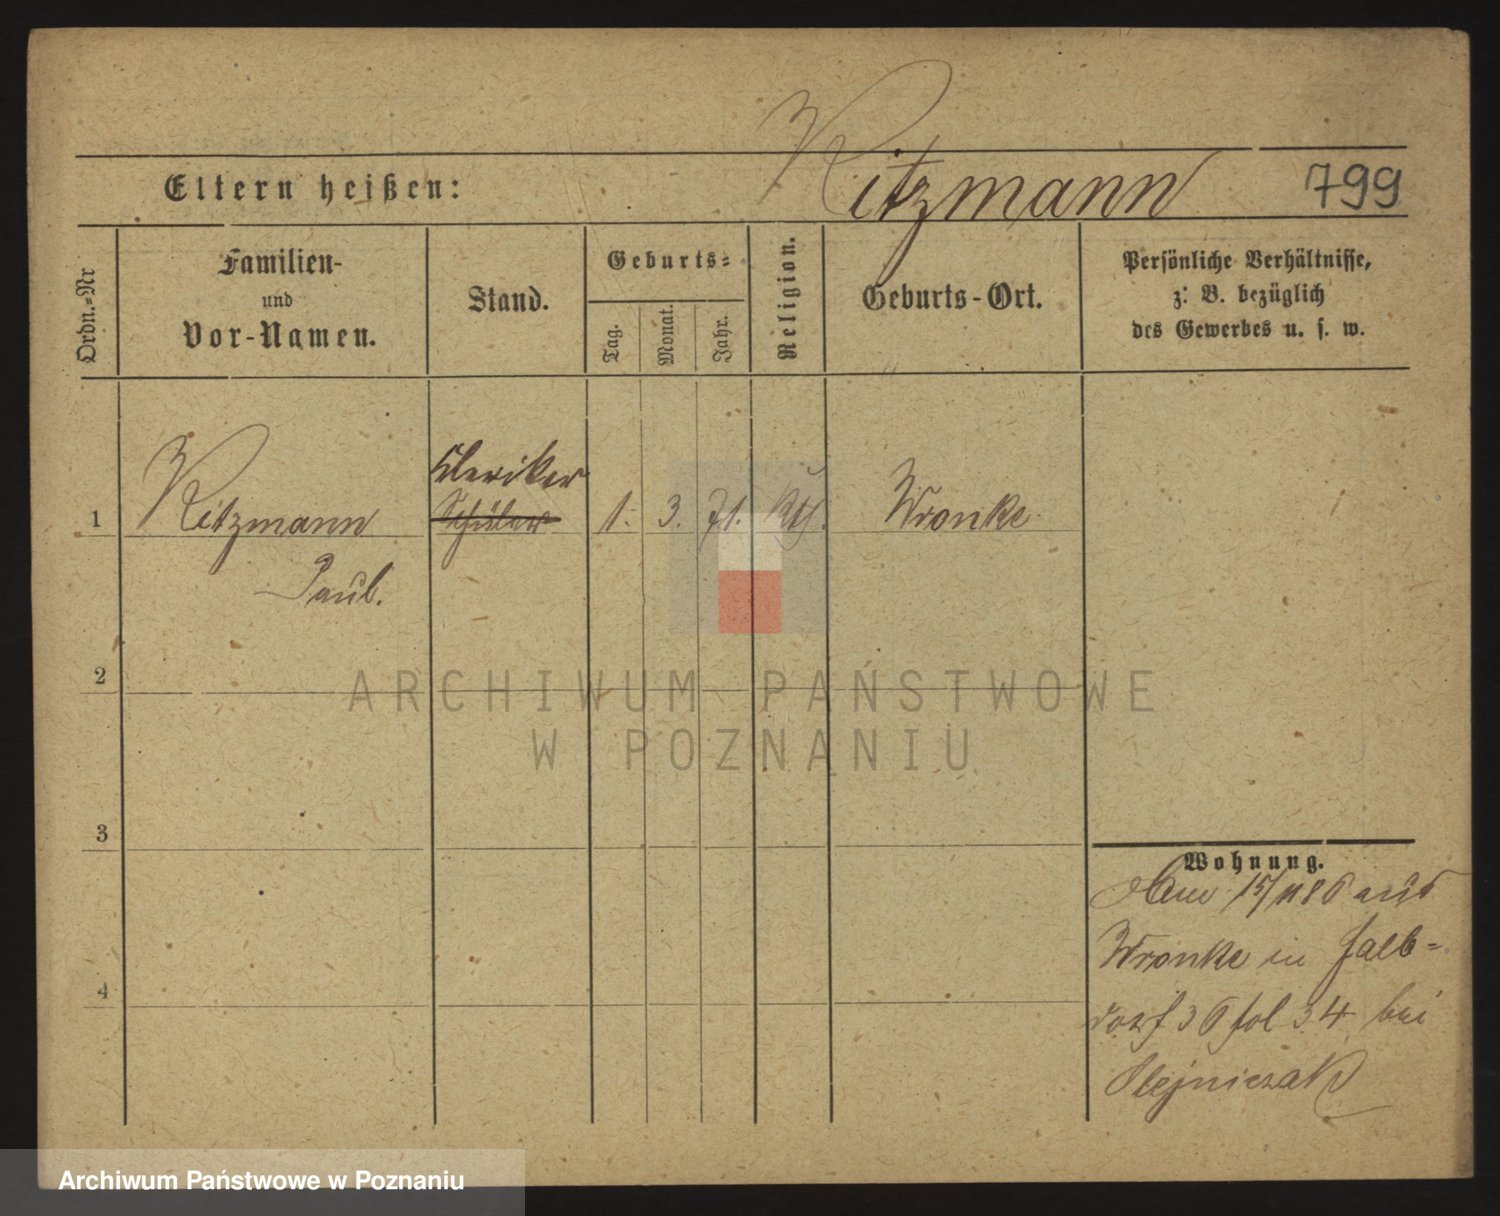 Ritzmann 799
Eltern heißen:
Ordn.=Nr
Familien-
und
Vor-Namen.
Stand.
Geburts=
Tag.
Monat.
Jahr.
Religion.
Geburts-Ort.
Persönliche Verhältnisse,
z. B. bezüglich
des Gewerbes u. s. w.
Kleriker
1 Ritzmann Schüler 1. 3. 71. Kth. Wronke
Paul.
2
ARCHIWUM PAŃSTWOWE
W POZNANIU
3
Wohnung.
15/11 86 aus
Wronke in Halb=
dorf 36 fol 34 bei
4
Olejniczak
Archiwum Państwowe w Poznaniu